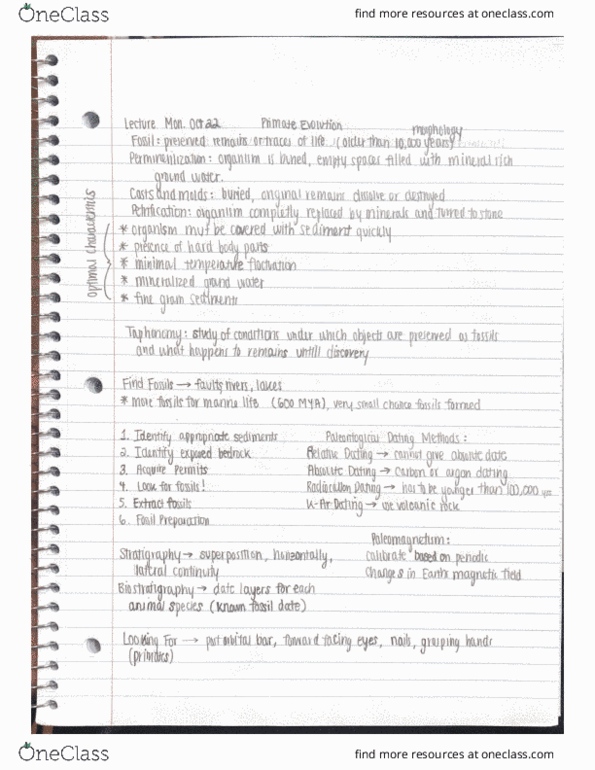 OneClass
find more resources at oneclass.com
Lecture Mon. Oct 22 Primate Evolution
morphology
Fossil: preserved remains or traces of life (older than 10,000 years)
Permineralization: organism is buried, empty spaces filled with mineral rich
ground water.
Casts and molds: buried, original remains disolve or destroyed
Petrification: organism completly replaced by minerals and turned to stone
optimal characteristics
* organism must be covered with sediment quickly
* presence of hard body parts
* minimal temperature fluctuation
* mineralized ground water
* fine grain sediments
Taphonomy: study of conditions under which objects are preserved as fossils
and what happens to remains untill discovery
Find Fossils → faults, rivers, lakes
* more fossils for marine life (600 MYA), very small chance fossils formed
1. Identify appropriate sediments
2. Identify exposed bedrock
3. Acquire Permits
4. Look for fossils!
5. Extract fossils
6. Fossil Preparation
Paleontological Dating Methods:
Relative Dating → cannot give absolute date
Absolute Dating → Carbon or argon dating
Radiocarbon Dating → has to be younger than 100,000 yrs
K-Ar Dating → use volcanic rock
Stratigraphy → superposition, horizontally,
lateral continuity
Biostratigraphy → date layers for each
animal species (known fossil date)
Paleomagnetism:
calibrate based on periodic
changes in Earths magnetic field
Looking For → post orbital bar, forward facing eyes, nails, grasping hands
(primates)
OneClass
find more resources at oneclass.com